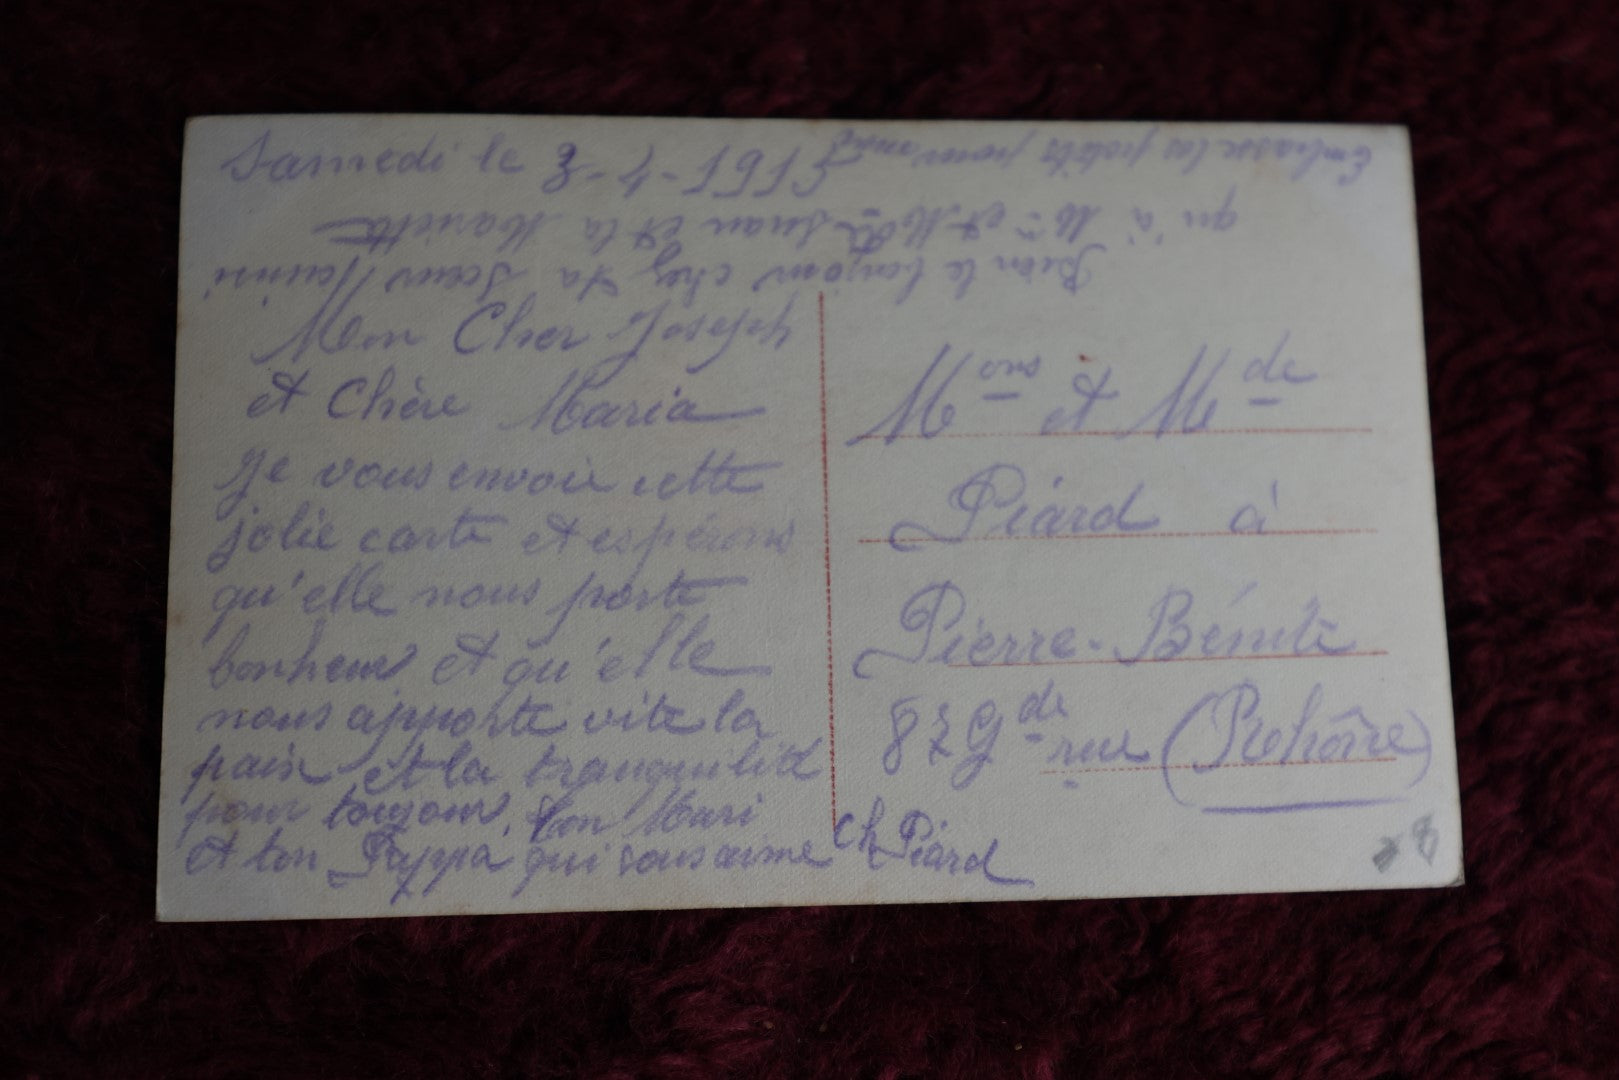 Samedi le 3-4-1915
Mon Cher Joseph
et Chère Maria
Je vous envoie cette
jolie carte et espérons
qu'elle nous porte
bonheur et qu'elle
nous apporte vite la
paix et la tranquilité
pour toujour. ton Mari
et ton Pappa qui vous aime Ch Piard
Bien le bonjour chez ta Sœur
qu'à Mr et Mde et la Mariette
Embrasse les petits pour moi
Mons et Mde
Piard à
Pierre-Bénite
87 Gde rue (Rohône)